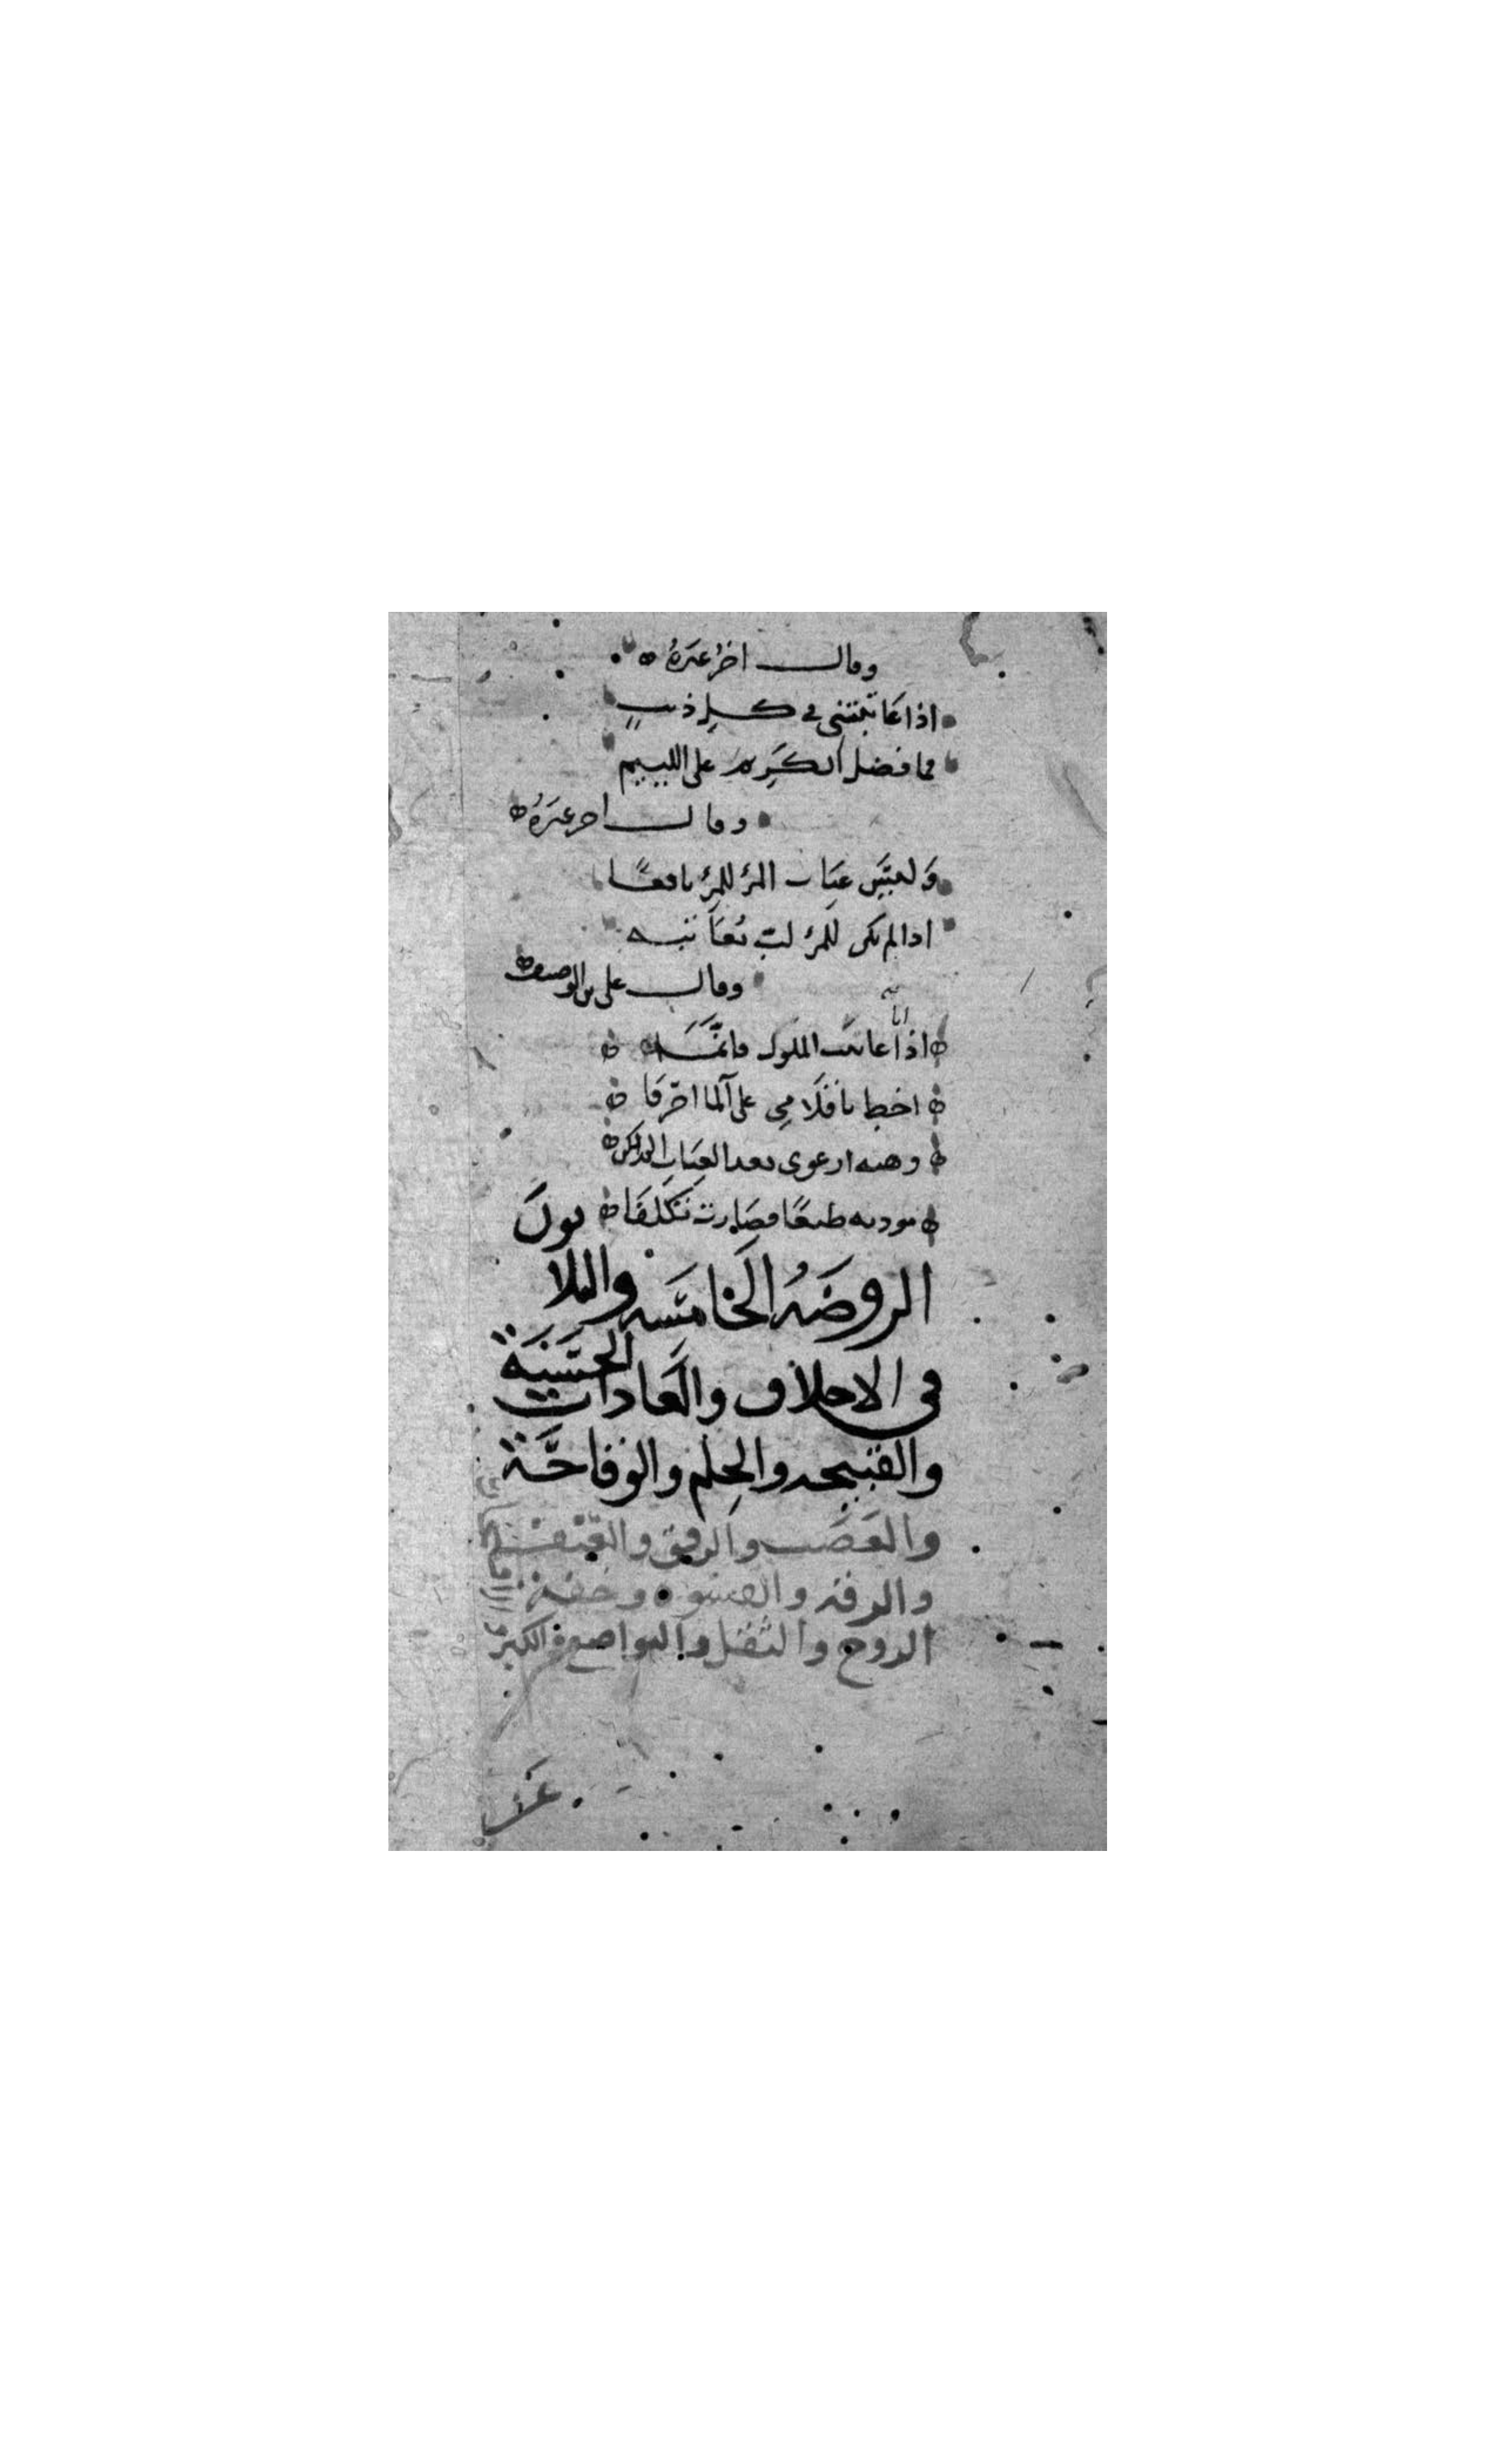 وقال اخر غيره
اذا عاتبتني في كل ذنب
فما فضل الكريم على اللييم
وقال اخر غيره
وليس عتاب المرء للمرء نافعا
اذا لم يكن للمرء لب يعاتبه
وقال على بن الوصيف
انا
اذا عاتبت الملوك فانما
اخط باقلامي على الما احرفا
وهبه ارعوى بعد العتاب الم يكن
مودته طبعا فصارت تكلفا
الروضة الخامسة والثلاثون
في الاخلاق والعادات الحسنة
والقبيحه والحلم والوقاحة
والغضب والرفق والعنف
والرقه والقسوه وخفة
الروح والثقل والتواضع والكبر